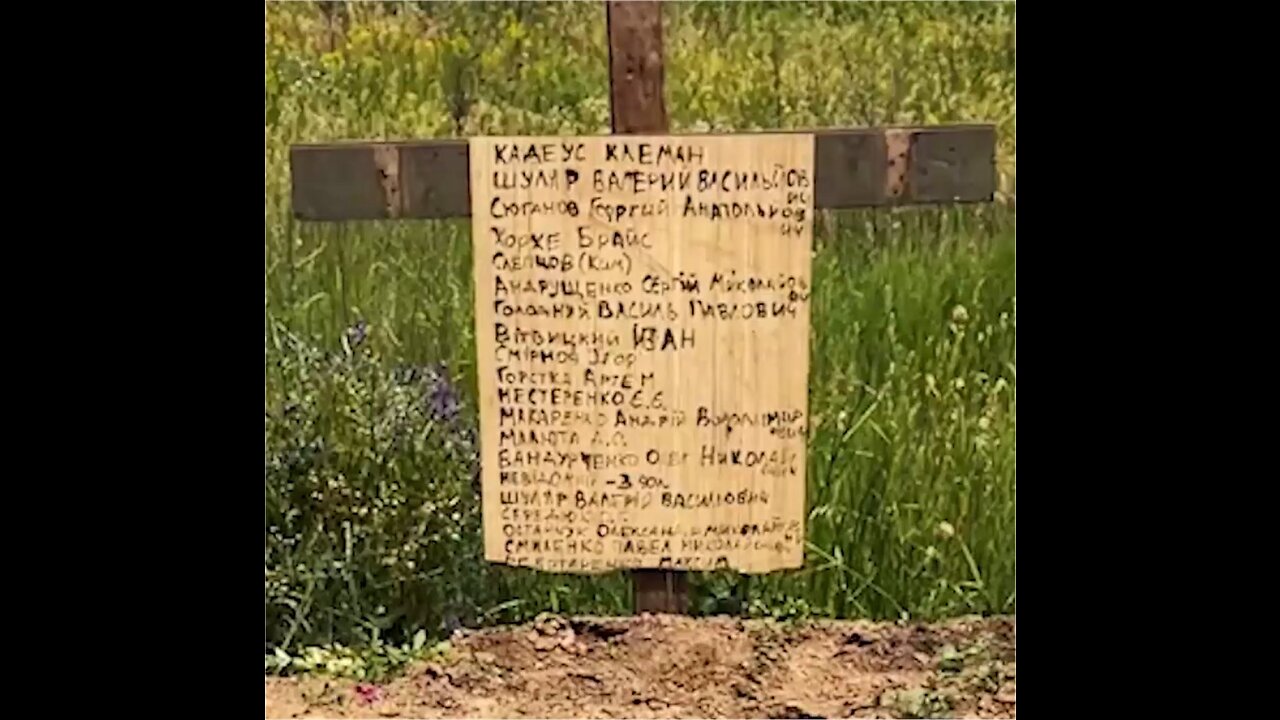 КАДЕУС КЛЕМАН
ШУЛЯР ВАЛЕРИЙ ВАСИЛЬЙОВ
ИЧ
СЮГАНОВ ГЕОРГИЙ АНАТОЛЬЕОВ
ИЧ
ХОРХЕ БРАЙС
СЛЕПЦОВ (КИМ)
АНДРУЩЕНКО СЕРГІЙ МИКОЛАЙОВ
ГОЛОДНУЙ ВАСИЛЬ ПАВЛОВИЧ
ВІТВИЦКИЙ ИВАН
СМІРНОВ ІГОР
ГОРСТКА АРТЕМ
НЕСТЕРЕНКО Є.Є.
МАКАРЕНКО АНДРІЙ ВОЛОДИМИР
ОВИЧ
МАЛЮТА А.О.
БАНДУРЧЕНКО ОЛЕГ НИКОЛАЕ
НЕВІДОМИЙ - 3
ШУЛЯР ВАЛЕРІЙ ВАСИЛЮВИЧ
ОСТАПЧУК МИКОЛАЙ
СМИЛЕНКО ПАВЕЛ
МАКСИМ